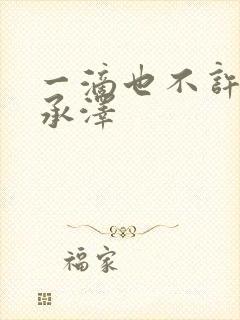 一滴也不許
承澤
福家